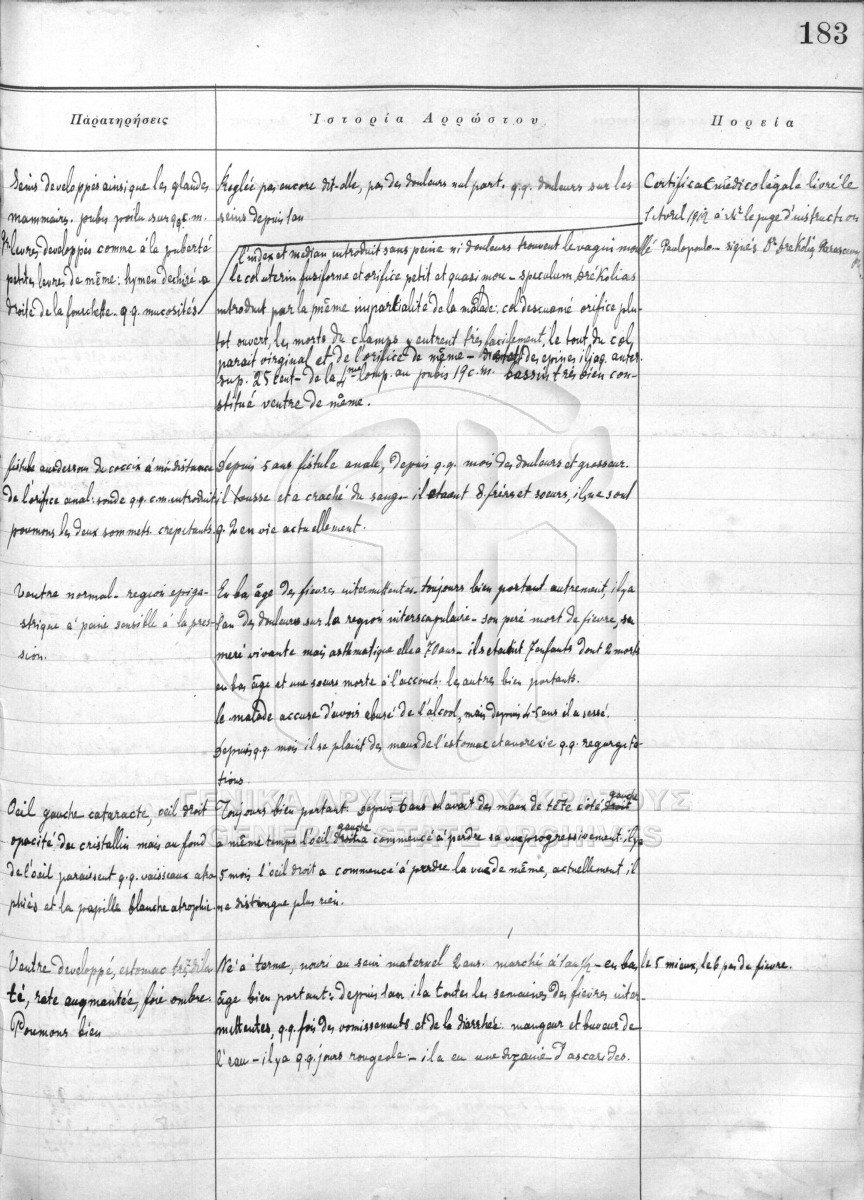 183
Παρατηρήσεις
Ἱστορία Ἀρρώστου
Πορεία
Seins developpés ainsi que les glandes
mammaires. poubis poilu sur q.q. c.m.
gr levres developpés comme à la puberté
petites levres de même: hymen dechiré a
droite de la fourchette. q.q. mucosités
Reglée pas encore dit-elle, pas des douleurs nul part. q.q. douleurs sur les
seins depuis 1 an
l'index et median introduit sans peine ni douleurs trouvent le vagin mou
le col uterin fusiforme et orifice petit et quasi mou - speculum
introduit par la même impartialité de la malade: col descuamé orifice plu-
tot ouvert, les morts du clamps y entrent très facilement, le tout du col
parait virginal et de l'orifice de même - des epines iliaq. anter.
sup. 25 cent - de la 4me lomb. au poubis 19 c.m. bassin très bien con-
stitué ventre de même.
Certificat médicolégale livré le
1 Avril 1912 à Mr le juge d'instruction
Paulopoulo - signés Dr
fistule audessous du coccix à mi distance
de l'orifice anal: sonde q.q. c.m. introduit
poumons les deux sommets crepitants
Depuis 5 ans fistulle anale, depuis q.q. mois des douleurs et grosseur.
il tousse et a craché du sang - il etaent 8 fréres et soeurs, il ne sont
q. 2 en vie actuellement.
Ventre normal - region epiga-
strique à peine sensible à la pres-
sion.
En ba âge des fievres intermittentes - toujours bien portant autrement, il y a
1 an des douleurs sur la region interscapulaire - son peré mort de fievre, sa
meré vivante mais asthmatique elle a 70 ans - ils etaient 7 enfants dont 2 morts
en bas âge et une soeurs morte à l'accouch. les autres bien portants.
le malade accuse d'avoir abusé de l'alcool, mais depuis 4-5 ans il a sessé.
Depuis q.q. mois il se plaint des maux de l'estomac et anorexie q.q. regurgita-
tions
Oeil gauche cataracte, oeil droit
opacité du cristallin mais au fond
de l'oeil paraissent q.q. vaisseaux atro-
phiés et la papille blanche atrophié.
Toujours bien portant. Depuis 6 ans el avait des maux de tête côté droit gauche
a même temps l'oeil droit gauche a commencé à perdre sa vue progressivement, il y a
5 mois l'oeil droit a commencé à perdre la vue de même, actuellement il
ne distingue plus rien.
Ventre developpé, estomac très dila-
té, rate augmentée, foie ombre.
Poumons bien
Né a terme, nouri au sein maternel 2 ans. marché à 1 an 1/2 - en bas
âge bien portant: depuis 1 an il a toutes les semaines des fievres inter-
mittentes, q.q. fois des vomissements et de la diarrheé. mangeur et buveur de
l'eau - il y a q.q. jours rougeole - il a eu une dizainé d'ascarides.
le 5 mieux, le 6 pas de fievre.
ΓΕΝΙΚΑ ΑΡΧΕΙΑ ΤΟΥ ΚΡΑΤΟΥΣ
GENERAL STATE ARCHIVES